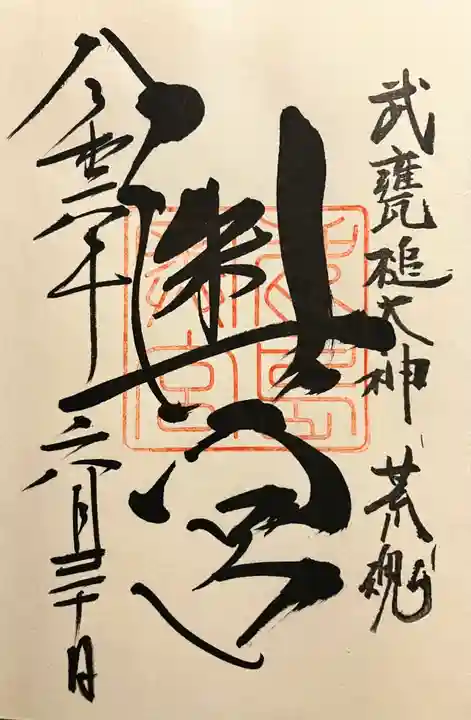 武甕槌大神 荒魂
奥宮
令和六年 六月三十日